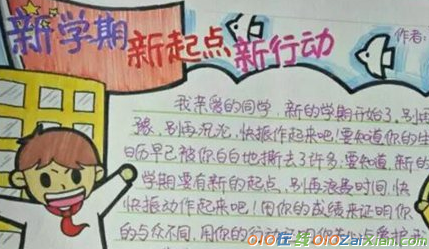 新学期 新起点 新行动
作者:
我亲爱的同学,新的学期开始了,别再
豫,别再沉沦,快振作起来吧!要知道你的生
日历早已被你白白地撕去了许多,要知道 新的
学期要有新的起点,别再浪费时间,快
快振动作起来吧!用你的成绩来证明你
的与众不同,用你的行动
OIO在线OIOZaiXian.com